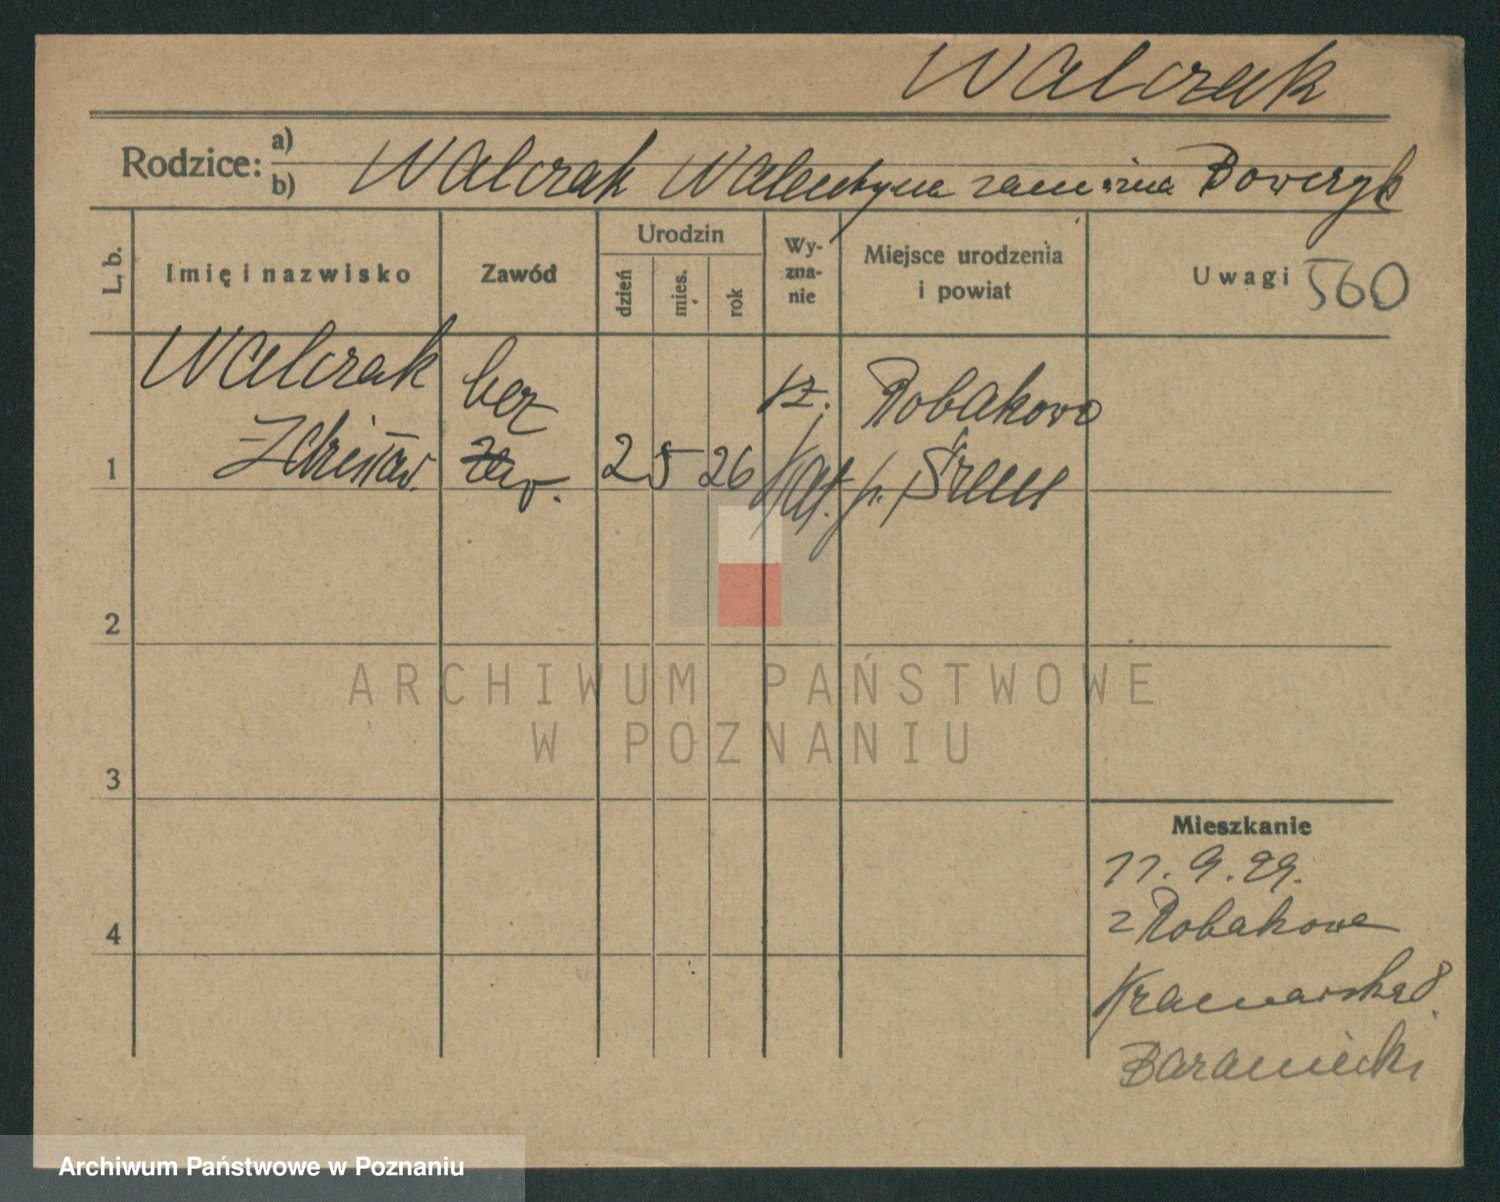 Walczak
Rodzice:
a)
b) Walczak Walentyna zamężna Bowczyk
L. b.
Imię i nazwisko
Zawód
Urodzin
dzień
mies.
rok
Wy-
zna-
nie
Miejsce urodzenia
i powiat
Uwagi 560
Walczak
Zdzisław.
bez
zaw.
1
2 5 26
rz.
kat.
Robakowo
p. Śrem
2
3
4
Mieszkanie
11. 9. 29.
z Robakowa
Kramarska 8.
Baraniecki
ARCHIWUM PAŃSTWOWE
W POZNANIU
Archiwum Państwowe w Poznaniu